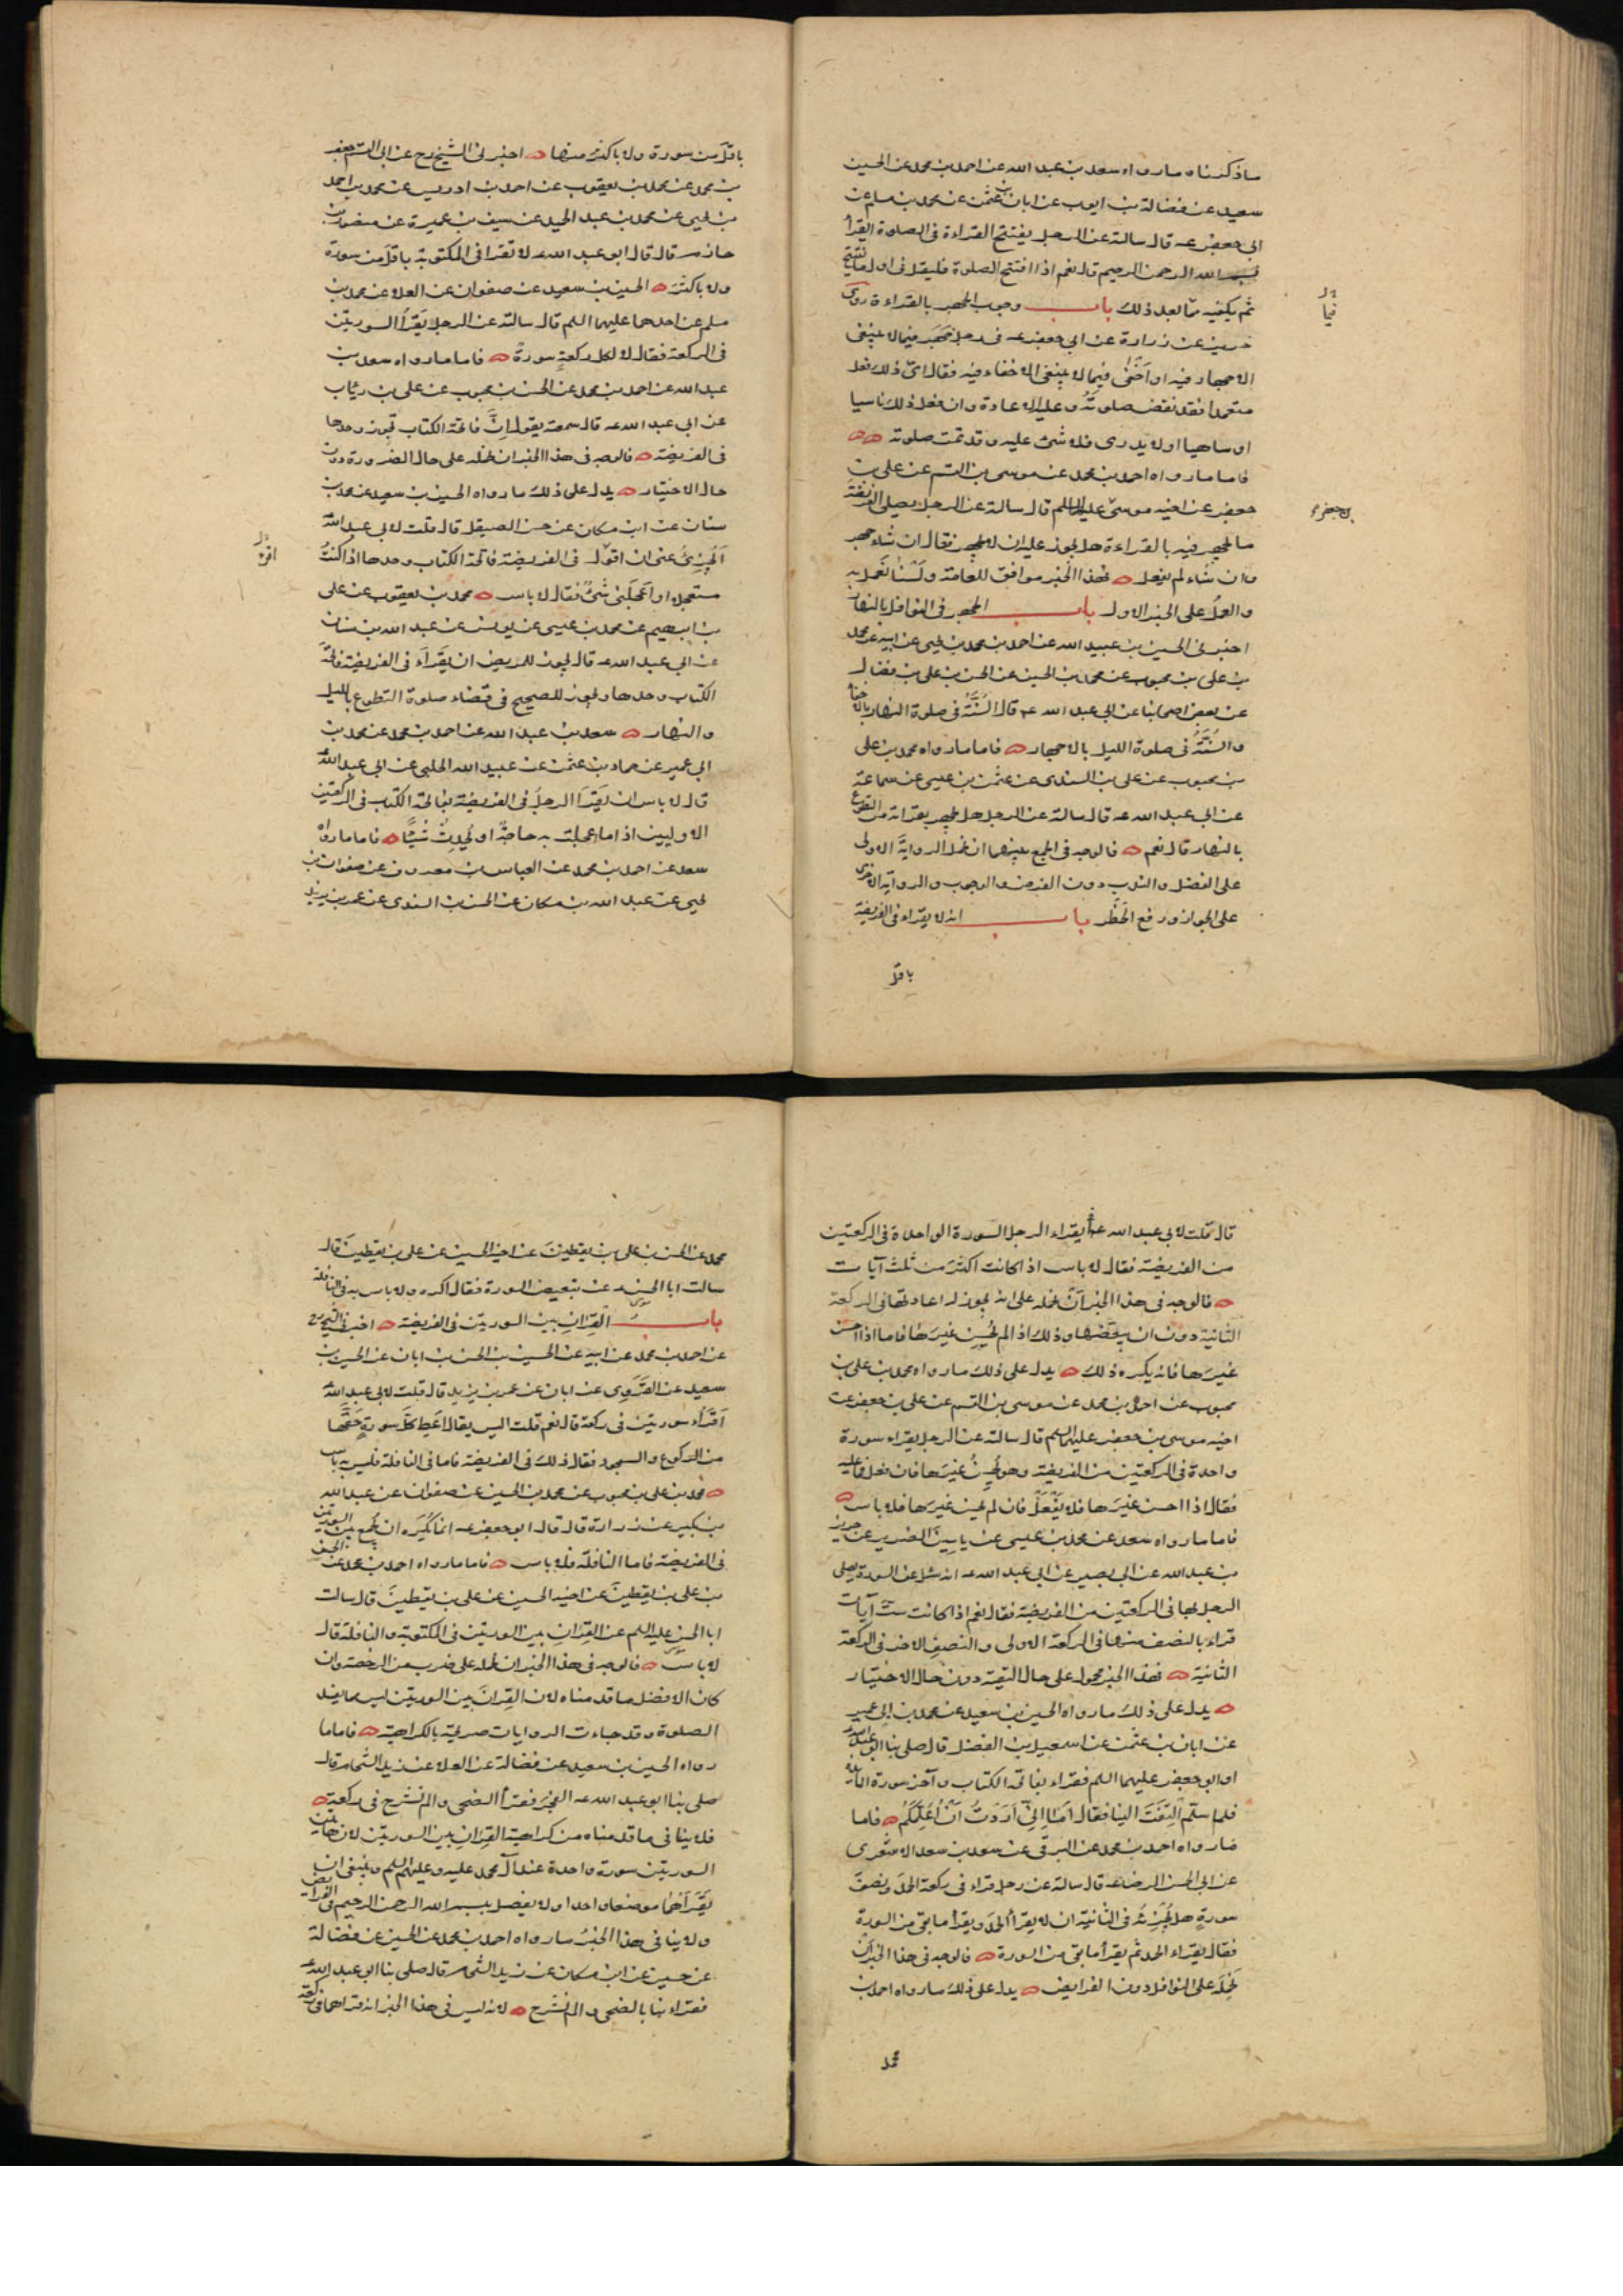 ما ذكرناه ما رواه سعد بن عبد الله عن احمد بن محمد عن الحسين
سعيد عن فضالة بن ايوب عن ابان بن عثمن عن محمد بن مسلم عن
ابى جعفر عه قال سالته عن الرجل يفتتح القراءة فى الصلوة ايقرأ
بسم الله الرحمن الرحيم قال نعم اذا افتتح الصلوة فليقل فى اول ما يفتتح
ثم يكفيه مما بعد ذلك باب وجوب الجهر بالقراءة روى
حريز عن زرارة عن ابى جعفر عه فى رجل جهر فيما لا ينبغى
الاجهار فيه او اخفى فيما لا ينبغى الاخفاء فيه فقال اى ذلك فعل
متعمدا فقد نقض صلوته و عليه الاعادة وان فعل ذلك ناسيا
او ساهيا او لا يدرى فلا شئ عليه و قد تمت صلوته
فاما ما رواه احمد بن محمد عن موسى بن القسم عن على بن
جعفر عن اخيه موسى عليه السلم قال سالته عن الرجل يصلى الفريضة
ما يجهر فيه بالقراءة هل يجوز عليه ان لا يجهر فقال ان شاء جهر
وان شاء لم يفعل فهذا الخبر موافق للعامة ولسنا نعمل به
والعمل على الخبر الاول باب الجهر فى النوافل بالنهار
اخبرنى الحسين بن عبيد الله عن احمد بن محمد بن يحيى عن ابيه عن محمد
بن على بن محبوب عن محمد بن الحسين عن الحسن بن على بن فضال
عن بعض اصحابنا عن ابى عبد الله عه قال السنة فى صلوة النهار بالاخفا
والسنة فى صلوة الليل بالاجهار فاما ما رواه محمد بن على
بن محبوب عن على بن السندى عن عثمن بن عيسى عن سماعة
عن ابى عبد الله عه قال سالته عن الرجل هل يجهر بقراءته من التطوع
بالنهار قال نعم فالوجه فى الجمع بينهما ان نحمل الرواية الاولى
على الفضل والندب دون الفرض والوجوب والرواية الاخرى
على الجواز ورفع الحظر باب انه لا يقراء فى الفريضة
باقل
فيما
بن جعفر
باقل من سورة ولا باكثر منها اخبرنى الشيخ رح عن ابى القسم جعفر
بن محمد عن محمد بن يعقوب عن احمد بن ادريس عن محمد بن احمد
بن يحيى عن محمد بن عبد الحميد عن سيف بن عميرة عن منصور بن
حازم قال قال ابو عبد الله عه لا تقرا فى المكتوبة باقل من سورة
ولا باكثر الحسين بن سعيد عن صفوان عن العلا عن محمد بن
مسلم عن احدهما عليهما السلم قال سالته عن الرجل يقرأ السورتين
فى الركعة فقال لا لكل ركعة سورة فاما ما رواه سعد بن
عبد الله عن احمد بن محمد عن الحسن بن محبوب عن على بن رئاب
عن ابى عبد الله عه قال سمعته يقول ان فاتحة الكتاب تجوز وحدها
فى الفريضة فالوجه فى هذا الخبر ان نحمله على حال الضرورة دون
حال الاختيار يدل على ذلك ما رواه الحسين بن سعيد عن محمد بن
سنان عن ابن مسكان عن حسن الصيقل قال قلت لابى عبد الله
ايجزئ عنى ان اقول فى الفريضة فاتحة الكتاب وحدها اذا كنت
مستعجلا او اعجلنى شئ فقال لا باس محمد بن يعقوب عن على
بن ابرهيم عن محمد بن عيسى عن يونس عن عبد الله بن سنان
عن ابى عبد الله عه قال يجوز للمريض ان يقراء فى الفريضة فاتحة
الكتاب وحدها ويجوز للصحيح فى قضاء صلوة التطوع بالليل
والنهار سعد بن عبد الله عن احمد بن محمد عن محمد بن
ابى عمير عن حماد بن عثمن عن عبيد الله الحلبى عن ابى عبد الله
قال لا باس ان يقرا الرجل فى الفريضة بفاتحة الكتاب فى الركعتين
الاوليين اذا ما عجلت به حاجة او تحدث شيئا فاما ما رواه
سعد عن احمد بن محمد عن العباس بن معروف عن صفوان بن
يحيى عن عبد الله بن مسكان عن الحسن السندى عن عمر بن يزيد
اقرء
قال قلت لابى عبد الله عه ايقراء الرجل السورة الواحدة فى الركعتين
من الفريضة فقال لا باس اذا كانت اكثر من ثلث آيات
فالوجه فى هذا الخبر ان نحمله على انه يجوز له اعادتها فى الركعة
الثانية دون ان يبعضها وذلك اذا لم يحسن غيرها فاما اذا احسن
غيرها فانه يكره ذلك يدل على ذلك ما رواه محمد بن على بن
محبوب عن احمد بن محمد عن موسى بن القسم عن على بن جعفر عن
اخيه موسى بن جعفر عليهما السلم قال سالته عن الرجل يقراء سورة
واحدة فى الركعتين من الفريضة وهو يحسن غيرها فان فعل فما عليه
فقال اذا احسن غيرها فلا يفعل فان لم يحسن غيرها فلا باس
فاما ما رواه سعد عن محمد بن عيسى عن ياسين الضرير عن حريز
بن عبد الله عن ابى بصير عن ابى عبد الله عه انه سئل عن السورة يصلى
الرجل بها فى الركعتين من الفريضة فقال نعم اذا كانت ست آيات
قراء بالنصف منها فى الركعة الاولى والنصف الاخر فى الركعة
الثانية فهذا الخبر محمول على حال التقية دون حال الاختيار
يدل على ذلك ما رواه الحسين بن سعيد عن محمد بن ابى عمير
عن ابان بن عثمن عن اسمعيل بن الفضل قال صلى بنا ابو عبد الله
او ابو جعفر عليهما السلم فقراء بفاتحة الكتاب وآخر سورة المائدة
فلما سلم التفت الينا فقال اما انى اردت ان اعلمكم فاما
ما رواه احمد بن محمد عن البرقى عن سعد بن سعد الاشعرى
عن ابى الحسن الرضا عه قال سالته عن رجل قراء فى ركعة الحمد ونصف
سورة هل يجزئه فى الثانية ان لا يقرأ الحمد ويقرأ ما بقى من السورة
فقال يقراء الحمد ثم يقرأ ما بقى من السورة فالوجه فى هذا الخبر ان
نحمله على النوافل دون الفرايض يدل على ذلك ما رواه احمد بن
محمد
محمد عن الحسن بن على بن يقطين عن اخيه الحسين عن على بن يقطين قال
سالت ابا الحسن عه عن تبعيض السورة فقال اكره ولا باس به فى النافلة
باب القران بين السورتين فى الفريضة اخبرنى الشيخ رح
عن احمد بن محمد عن ابيه عن الحسين بن الحسن بن ابان عن الحسين بن
سعيد عن القروى عن ابان عن عمر بن يزيد قال قلت لابى عبد الله
اقراء سورتين فى ركعة قال نعم قلت اليس يقال اعط كل سورة حقها
من الركوع والسجود فقال ذلك فى الفريضة فاما فى النافلة فليس به باس
محمد بن على بن محبوب عن محمد بن الحسين عن صفوان عن عبد الله
بن بكير عن زرارة قال قال ابو جعفر عه انما يكره ان يجمع بين السورتين
فى الفريضة فاما النافلة فلا باس فاما ما رواه احمد بن محمد عن الحسن
بن على بن يقطين عن اخيه الحسين عن على بن يقطين قال سالت
ابا الحسن عليه السلم عن القران بين السورتين فى المكتوبة والنافلة قال
لا باس فالوجه فى هذا الخبر ان نحمله على ضرب من الرخصة وان
كان الافضل ما قدمناه لان القران بين السورتين ليس مما يفسد
الصلوة وقد جاءت الروايات صريحة بالكراهية فاما ما
رواه الحسين بن سعيد عن فضالة عن العلا عن زيد الشحام قال
صلى بنا ابو عبد الله عه الفجر فقرأ الضحى والم نشرح فى ركعة
فلا ينافى ما قدمناه من كراهية القران بين السورتين لان هاتين
السورتين سورة واحدة عند آل محمد عليه وعليهم السلم وينبغى ان
يقرأهما موضعا واحدا ولا يفصل ببسم الله الرحمن الرحيم فى الفرائض
ولا ينافى هذا الخبر ما رواه احمد بن محمد عن الحسين عن فضالة
عن حسين عن ابن مسكان عن زيد الشحام قال صلى بنا ابو عبد الله
فقراء بنا بالضحى والم نشرح لانه ليس فى هذا الخبر انه قراهما فى ركعة